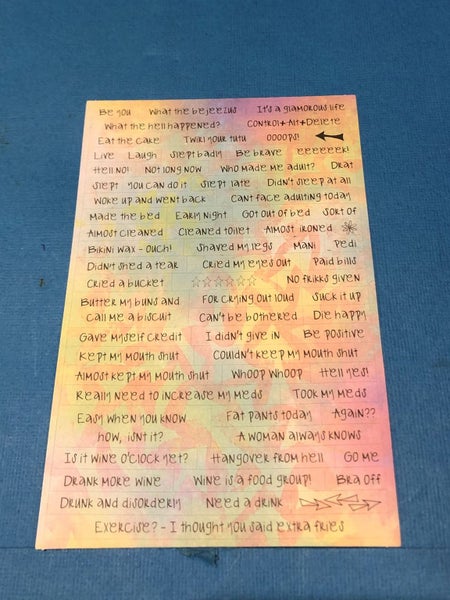 Be you What the bejeezus It's a glamorous life
What the hell happened? Control+Alt+Delete
Eat the cake Twirl your tutu Oooops!
Live Laugh Slept badly Be brave eeeeeek!
Hell no! Not long now Who made me adult? Drat
Slept You can do it Slept late Didn't sleep at all
Woke up and went back Cant face adulting today
Made the bed Early night Got out of bed Sort of
Almost cleaned Cleaned toilet Almost ironed
Bikini wax - ouch! Shaved my legs Mani Pedi
Didn't shed a tear Cried my eyes out Paid bills
Cried a bucket No frikks given
Butter my buns and For crying out loud Suck it up
call me a biscuit Can't be bothered Die happy
Gave myself credit I didn't give in Be positive
Kept my mouth shut Couldn't keep my mouth shut
Almost kept my mouth shut Whoop Whoop Hell yes!
Really need to increase my meds Took my meds
Easy when you know Fat pants today Again??
how, isnt it? A woman always knows
Is it wine o'clock yet? Hangover from hell Go me
Drank more wine Wine is a food group! Bra off
Drunk and disorderly Need a drink
Exercise? - I thought you said extra fries